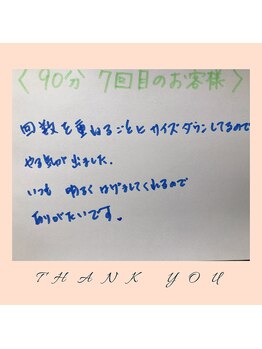 〈 90分 7回目のお客様 〉
回数を重ねるごとにサイズダウンしてるので
やる気が出ました.
いつも 明るく はげましてくれるので
ありがたいです。
THANK YOU